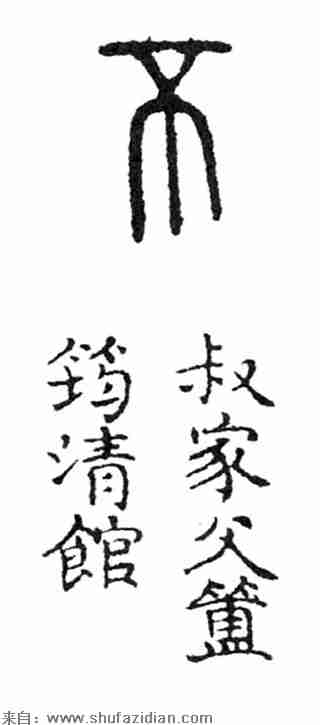 不
叔家父簠
筠清館
来自：www.shufazidian.com